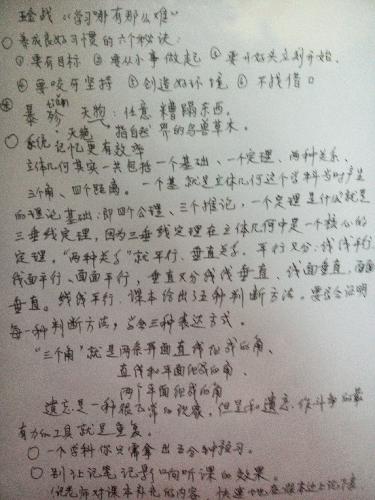 挑战《学习哪有那么难》
○养成良好习惯的六个秘诀:
①要有目标 ②要从小事做起 ③要从好头立刻开始、
④要咬牙坚持 ⑤创造好环境 ⑥不找借口
暴殄天物:任意糟蹋东西。
天物 指自然界的鸟兽草木。
○系统记忆更有效率
立体几何其实一共包括一个基础、一个定理、两种关系、
三个角、四个距离。一个基 就是立体几何这个学科当时产生
的理论基础:即四个公理、三个推论,一个定理是什么就是
三垂线定理,因为三垂线定理在立体几何中是一个核心的
定理,"两种关系"就平行、垂直关系.平行又分:线线平行、
线面平行、面面平行,垂直又分线线垂直、线面垂直、面面
垂直。线线平行.课本给出了五种判断方法。要学会证明
每一种判断方法,学会三种表达方式。
"三个角"就是两条异面直线组成的角、
直线和平面组成的角、
两个平面组成的角
遗忘是一种很正常的现象,但是和遗忘作斗争的最
有力的工具就是重复。
○一个学科你只需拿出五分钟预习。
○别让记笔记影响听课的效果。
把老师对课本补充的内容 快速地在课本边上记下来